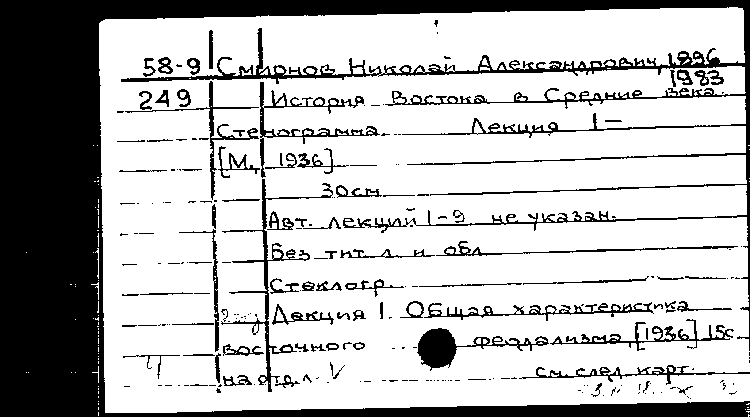 58-9 Смирнов, Николай Александрович, 1896
1983
249 История Востока в Средние века.
Стенограмма. Лекция 1—
[М., 1936]
30см
Авт. лекций 1-9 не указан.
Без тит. л. и обл.
Стеклогр.
Лекция 1. Общая характеристика
восточного феодализма, [1936] 15с
на отд. л. V см. след. карт.